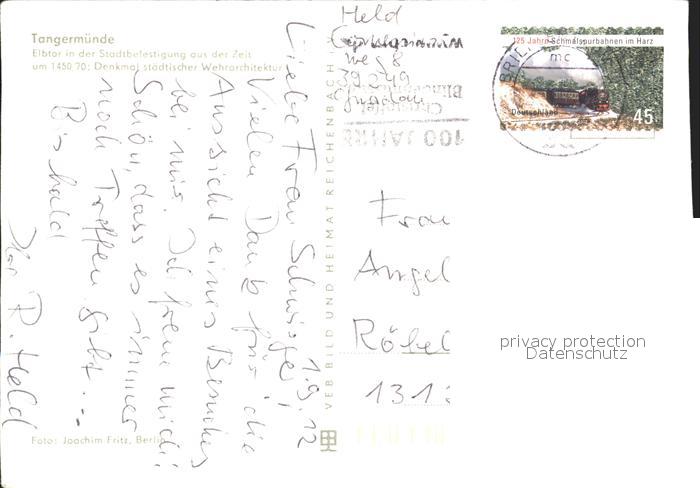 Tangermünde
Elbtor in der Stadtbefestigung aus der Zeit
um 1450/70; Denkmal städtischer Wehrarchitektur
1.9.12
Liebe Frau
Vielen Dank für die
Aussicht eines Besuches
bei mir. Ich freue mich
Schön, dass es immer
noch Treffen gibt ...
Bis bald
Ihr P. Held
Foto: Joachim Fritz, Berlin
VEB BILD UND HEIMAT REICHENBACH
Held
weg 8
39
100 JAHRE
BRIE
mc
125 Jahre Schmalspurbahnen im Harz
Deutschland
45
Frau
Angel
Röbel
131
privacy protection
Datenschutz